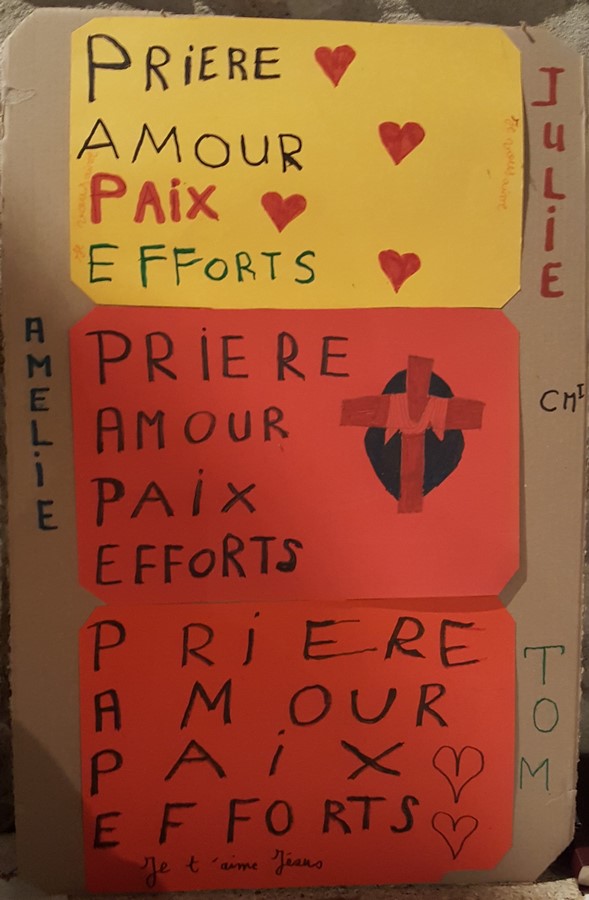 PRiERE
AMOUR
PAiX
EFFORTS
JULiE
PRiERE
AMOUR
PAiX
EFFORTS
AMELiE
CM1
PRiERE
AMOUR
PAiX
EFFORTS
Je t'aime Jésus
TOM